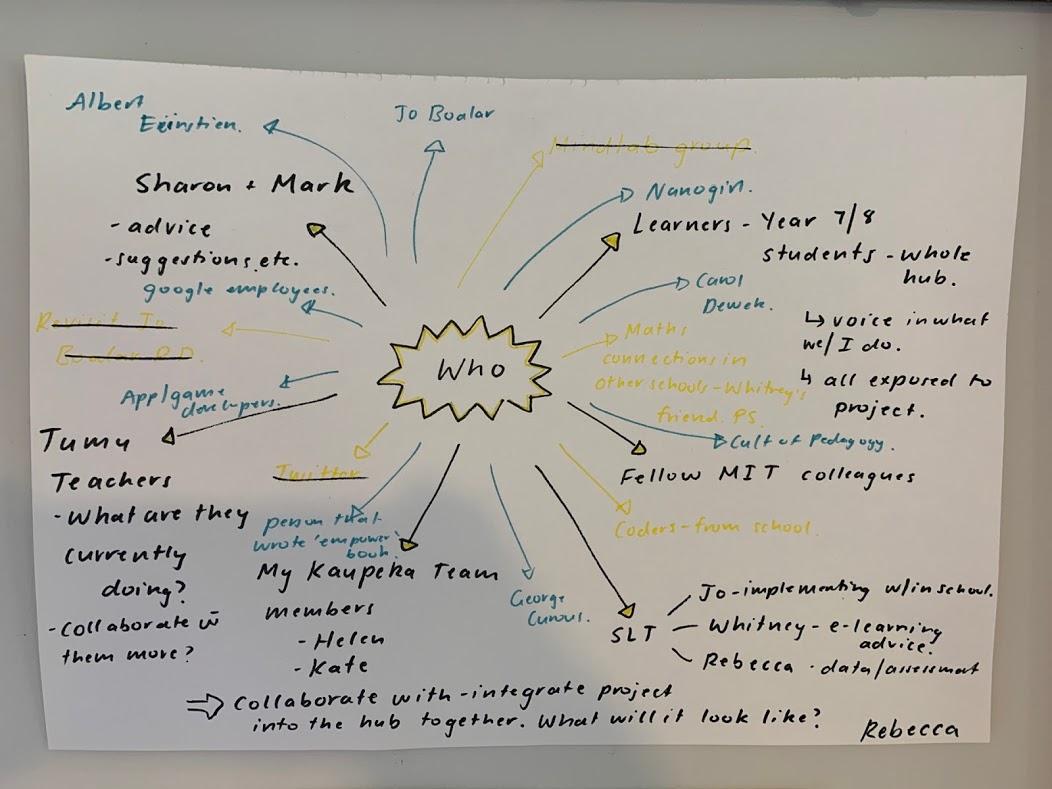 Albert
Eинstien.
Jo Boalar
Mindlab group.
Sharon + Mark
- advice
- suggestions, etc.
google employees.
Nanogirl.
Learners - Year 7/8
students - whole
hub.
↳ voice in what
we/I do.
↳ all exposed to
project.
Carol
Dewek.
Revisit Jo
Boalar P.D.
Maths
connections in
other schools - Whitney's
friend. PS.
Who
App/game
developers.
Tumu
Teachers
- What are they
currently
doing?
- Collaborate w̄
them more?
Twitter
Cult of Pedagogy.
Fellow MIT colleagues
Coders - from school.
person that
wrote 'empower'
book.
My Kaupeka Team
members
- Helen
- Kate
George
Curous.
SLT
Jo - implementing w/in school.
Whitney - e-learning
advice.
Rebecca - data/assessment
⇒ Collaborate with - integrate project
into the hub together. What will it look like?
Rebecca